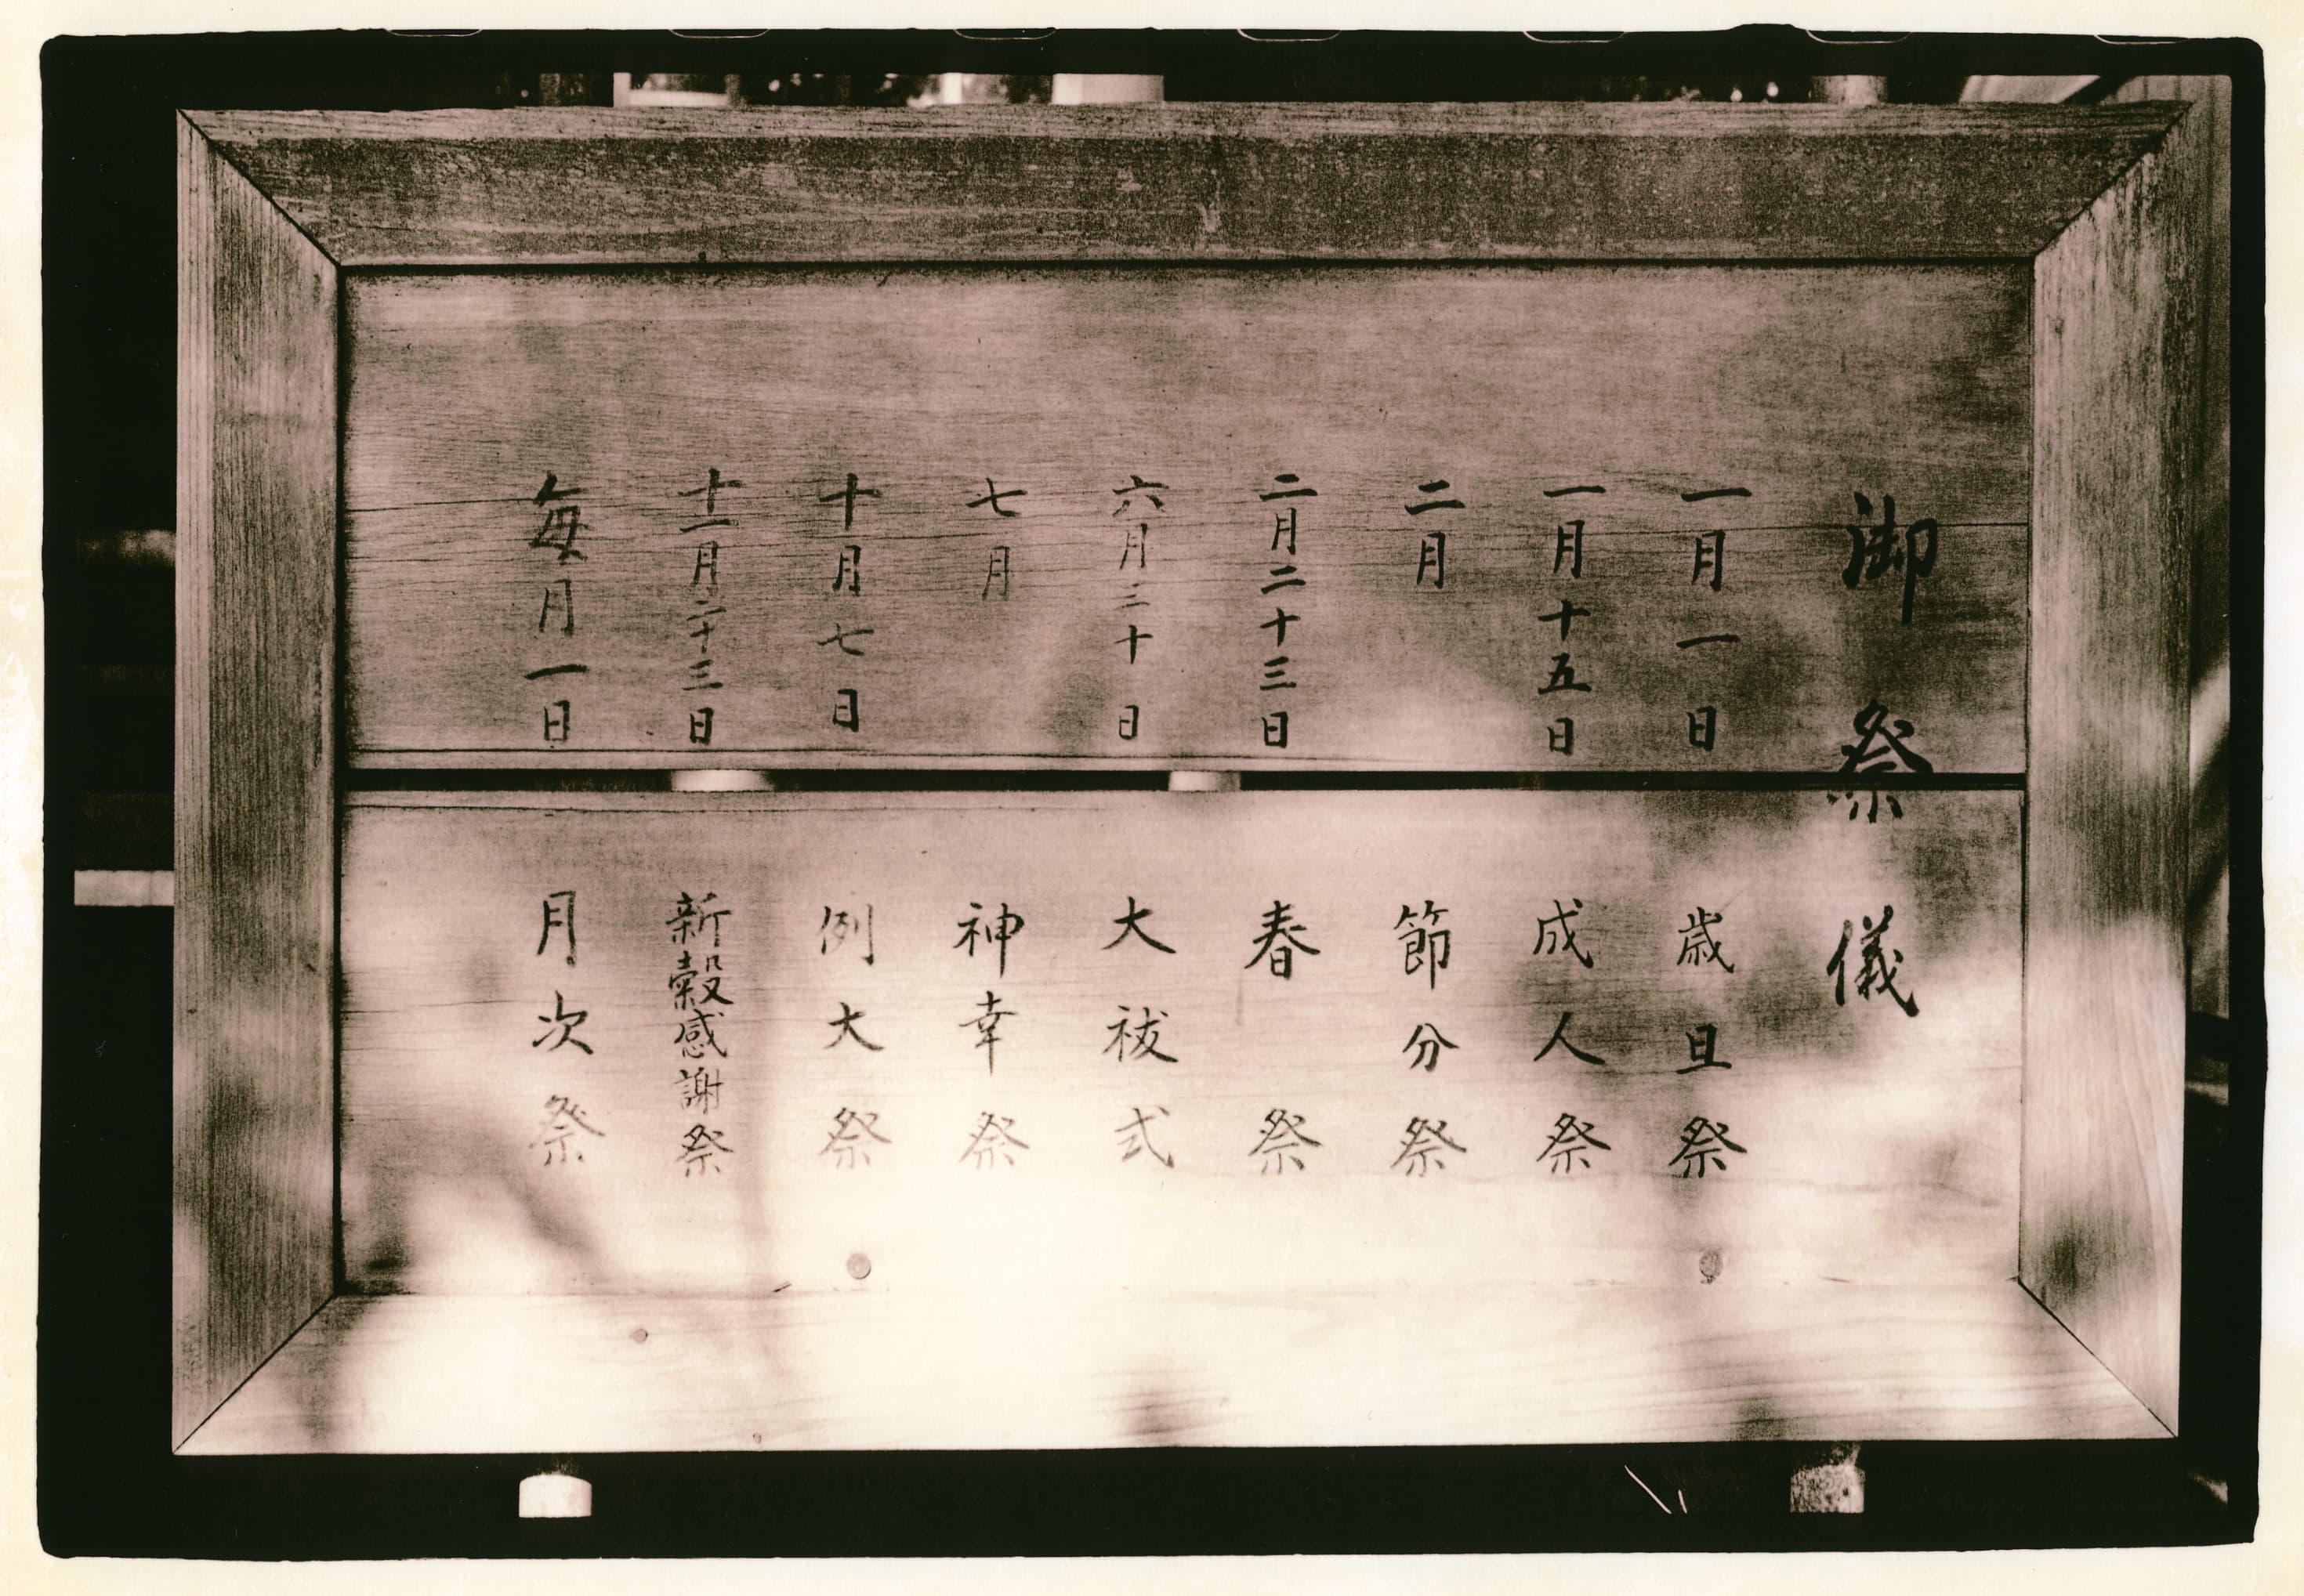 御祭儀
一月一日 歳旦祭
一月十五日 成人祭
二月 節分祭
二月二十三日 春祭
六月三十日 大祓式
七月 神幸祭
十月七日 例大祭
十一月二十三日 新穀感謝祭
毎月一日 月次祭